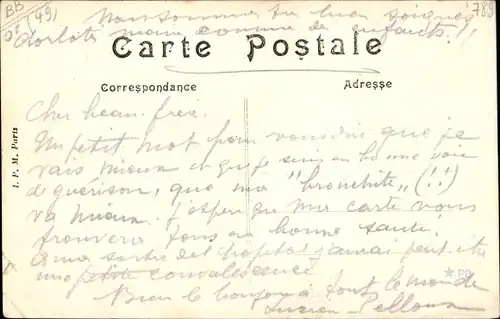 BB
(49)
789
Nous sommes très bien soignés,
dorlotés même comme des enfants!
Carte Postale
Correspondance
Adresse
I. P. M. Paris
Cher beau-frère.
Un petit mot pour vous dire que je
vais mieux et que je suis en bonne voie
de guérison, que ma "bronchite" (!!)
va mieux. J'espère que ma carte vous
trouvera tous en bonne santé.
A ma sortie de l'hopital j'aurai peut-être
une petite convalescence
Bien le bonjour à tout le monde
Lucien Pelloux